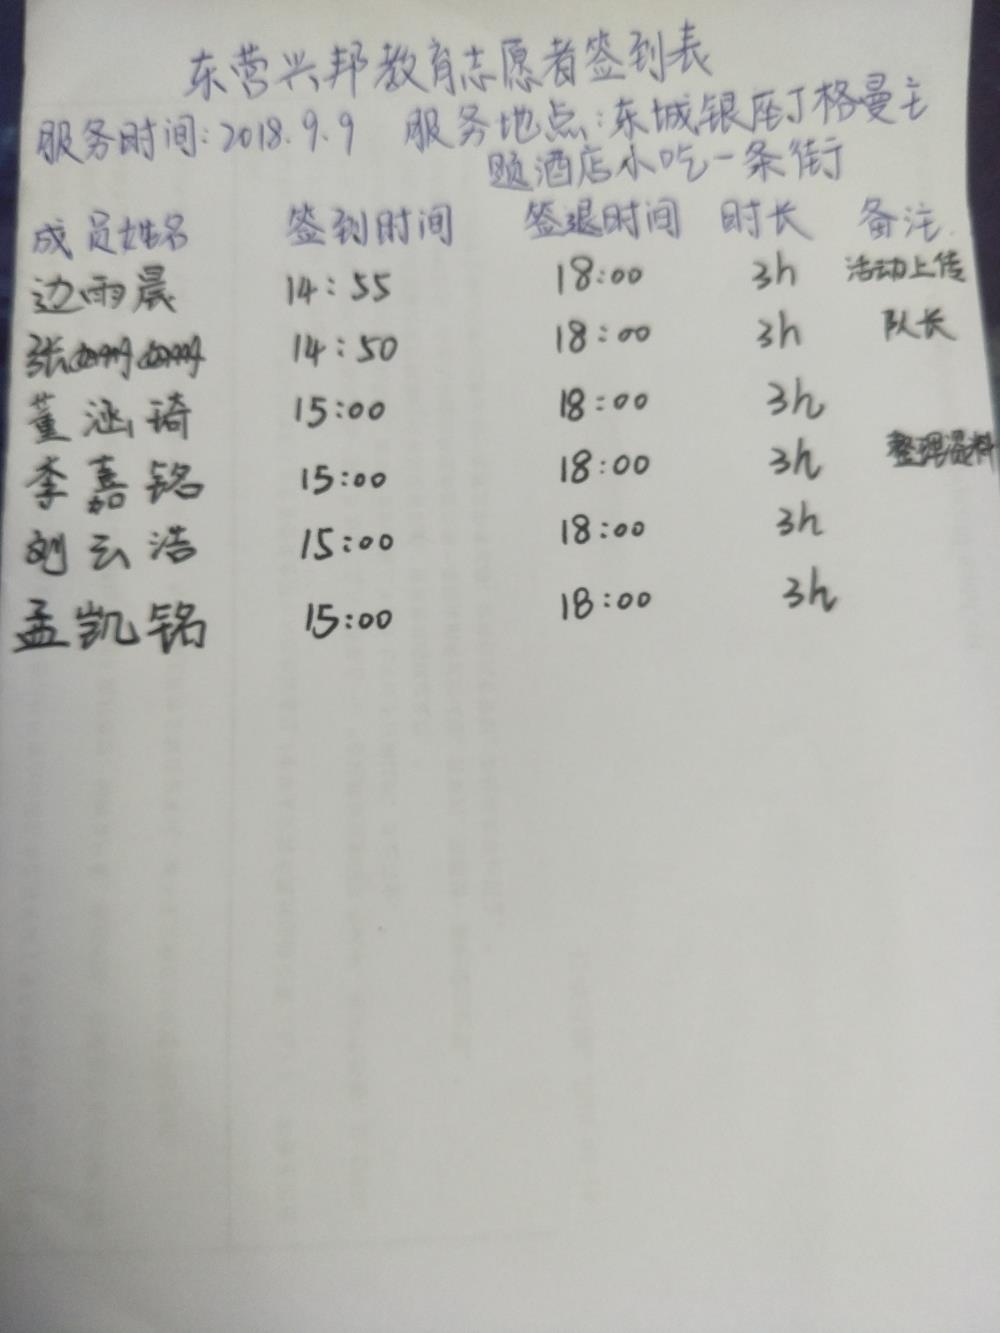 东营兴邦教育志愿者签到表
服务时间:2018.9.9 服务地点:东城银座丁格曼主
题酒店小吃一条街
成员姓名 签到时间 签退时间 时长 备注
边雨晨 14:55 18:00 3h 活动上传
张姗姗 14:50 18:00 3h 队长
董涵琦 15:00 18:00 3h
李嘉铭 15:00 18:00 3h 整理资料
刘云浩 15:00 18:00 3h
孟凯铭 15:00 18:00 3h